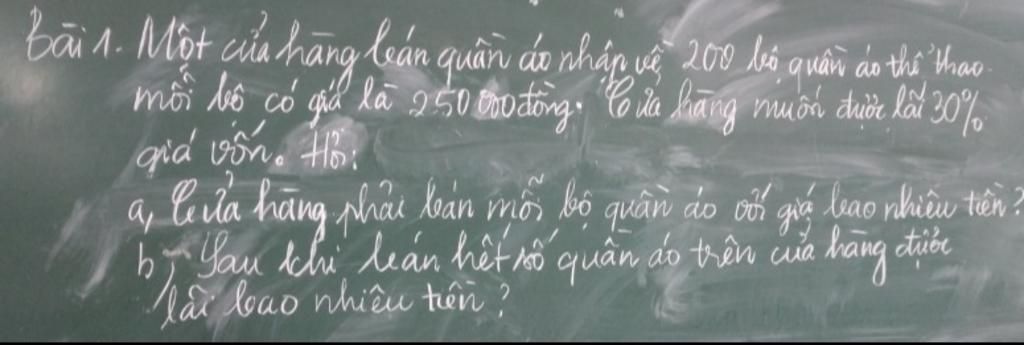 Bài 1. Một cửa hàng bán quần áo nhập về 200 bộ quần áo thể thao.
mỗi bộ có giá là 250 000 đồng. Cửa hàng muốn được lãi 30%
giá vốn. Hỏi:
a, Cửa hàng phải bán mỗi bộ quần áo với giá bao nhiêu tiền?
b, Sau khi bán hết số quần áo trên cửa hàng được
lãi bao nhiêu tiền?